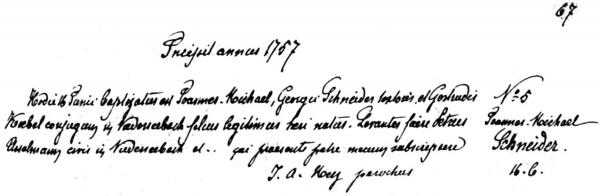 67
Incipit annus 1757
Hodie 16 Junii baptizatus est Joannes-Michael, Georgii Schneider textoris, et Gertrudis
Koebel conjugum in Niederseebach filius legitimus heri natus. Levantes fuere Petrus
civis in Niederseebach et... qui praesente patre mecum subscripsere
J. A. parochus
N° 5
Joannes-Michael
Schneider.
16. 6.